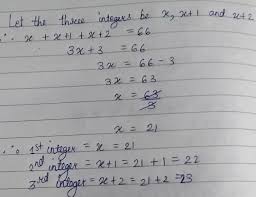 Let the three integers be x, x+1 and x+2
∴ x + x+1 + x+2 = 66
3x + 3 = 66
3x = 66 - 3
3x = 63
x = 63/3
x = 21
∴ 1st integer = x = 21
2nd integer = x+1 = 21 + 1 = 22
3rd integer = x+2 = 21+2 = 23